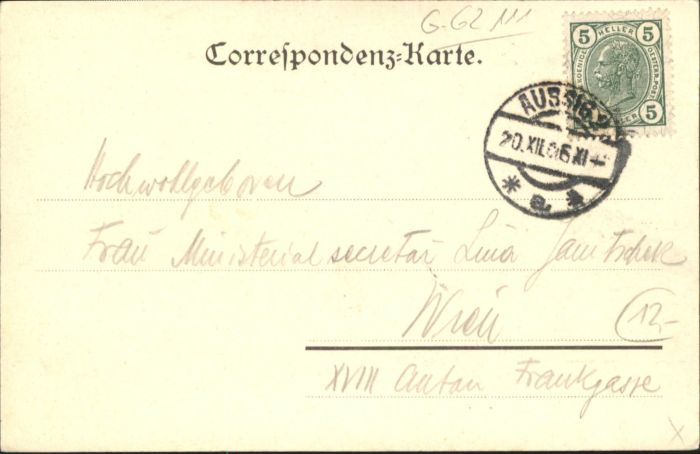 G. 62 111
Correſpondenz-Karte.
5 HELLER 5
KOENIGL. OESTERR. POST
HELLER 5
AUSSIG 2
20.XII.06 XI
* a. *
Hochwohlgeboren
Frau Ministerialsecretär Lina Janitschek
Wien
12-
XVIII Anton Frankgasse
X